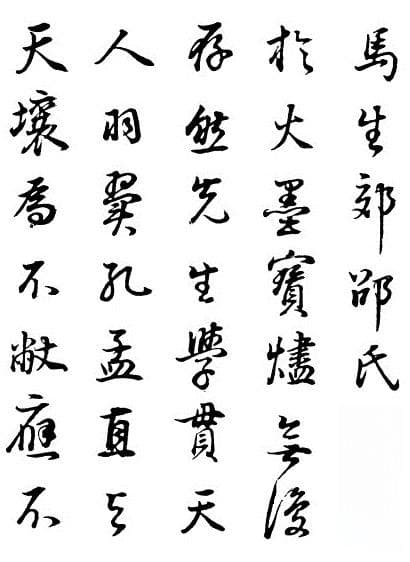 馬生郊邵氏
於火墨寶燼無復
存然先生學貫天
人羽翼孔孟直與
天壤為不敝應不